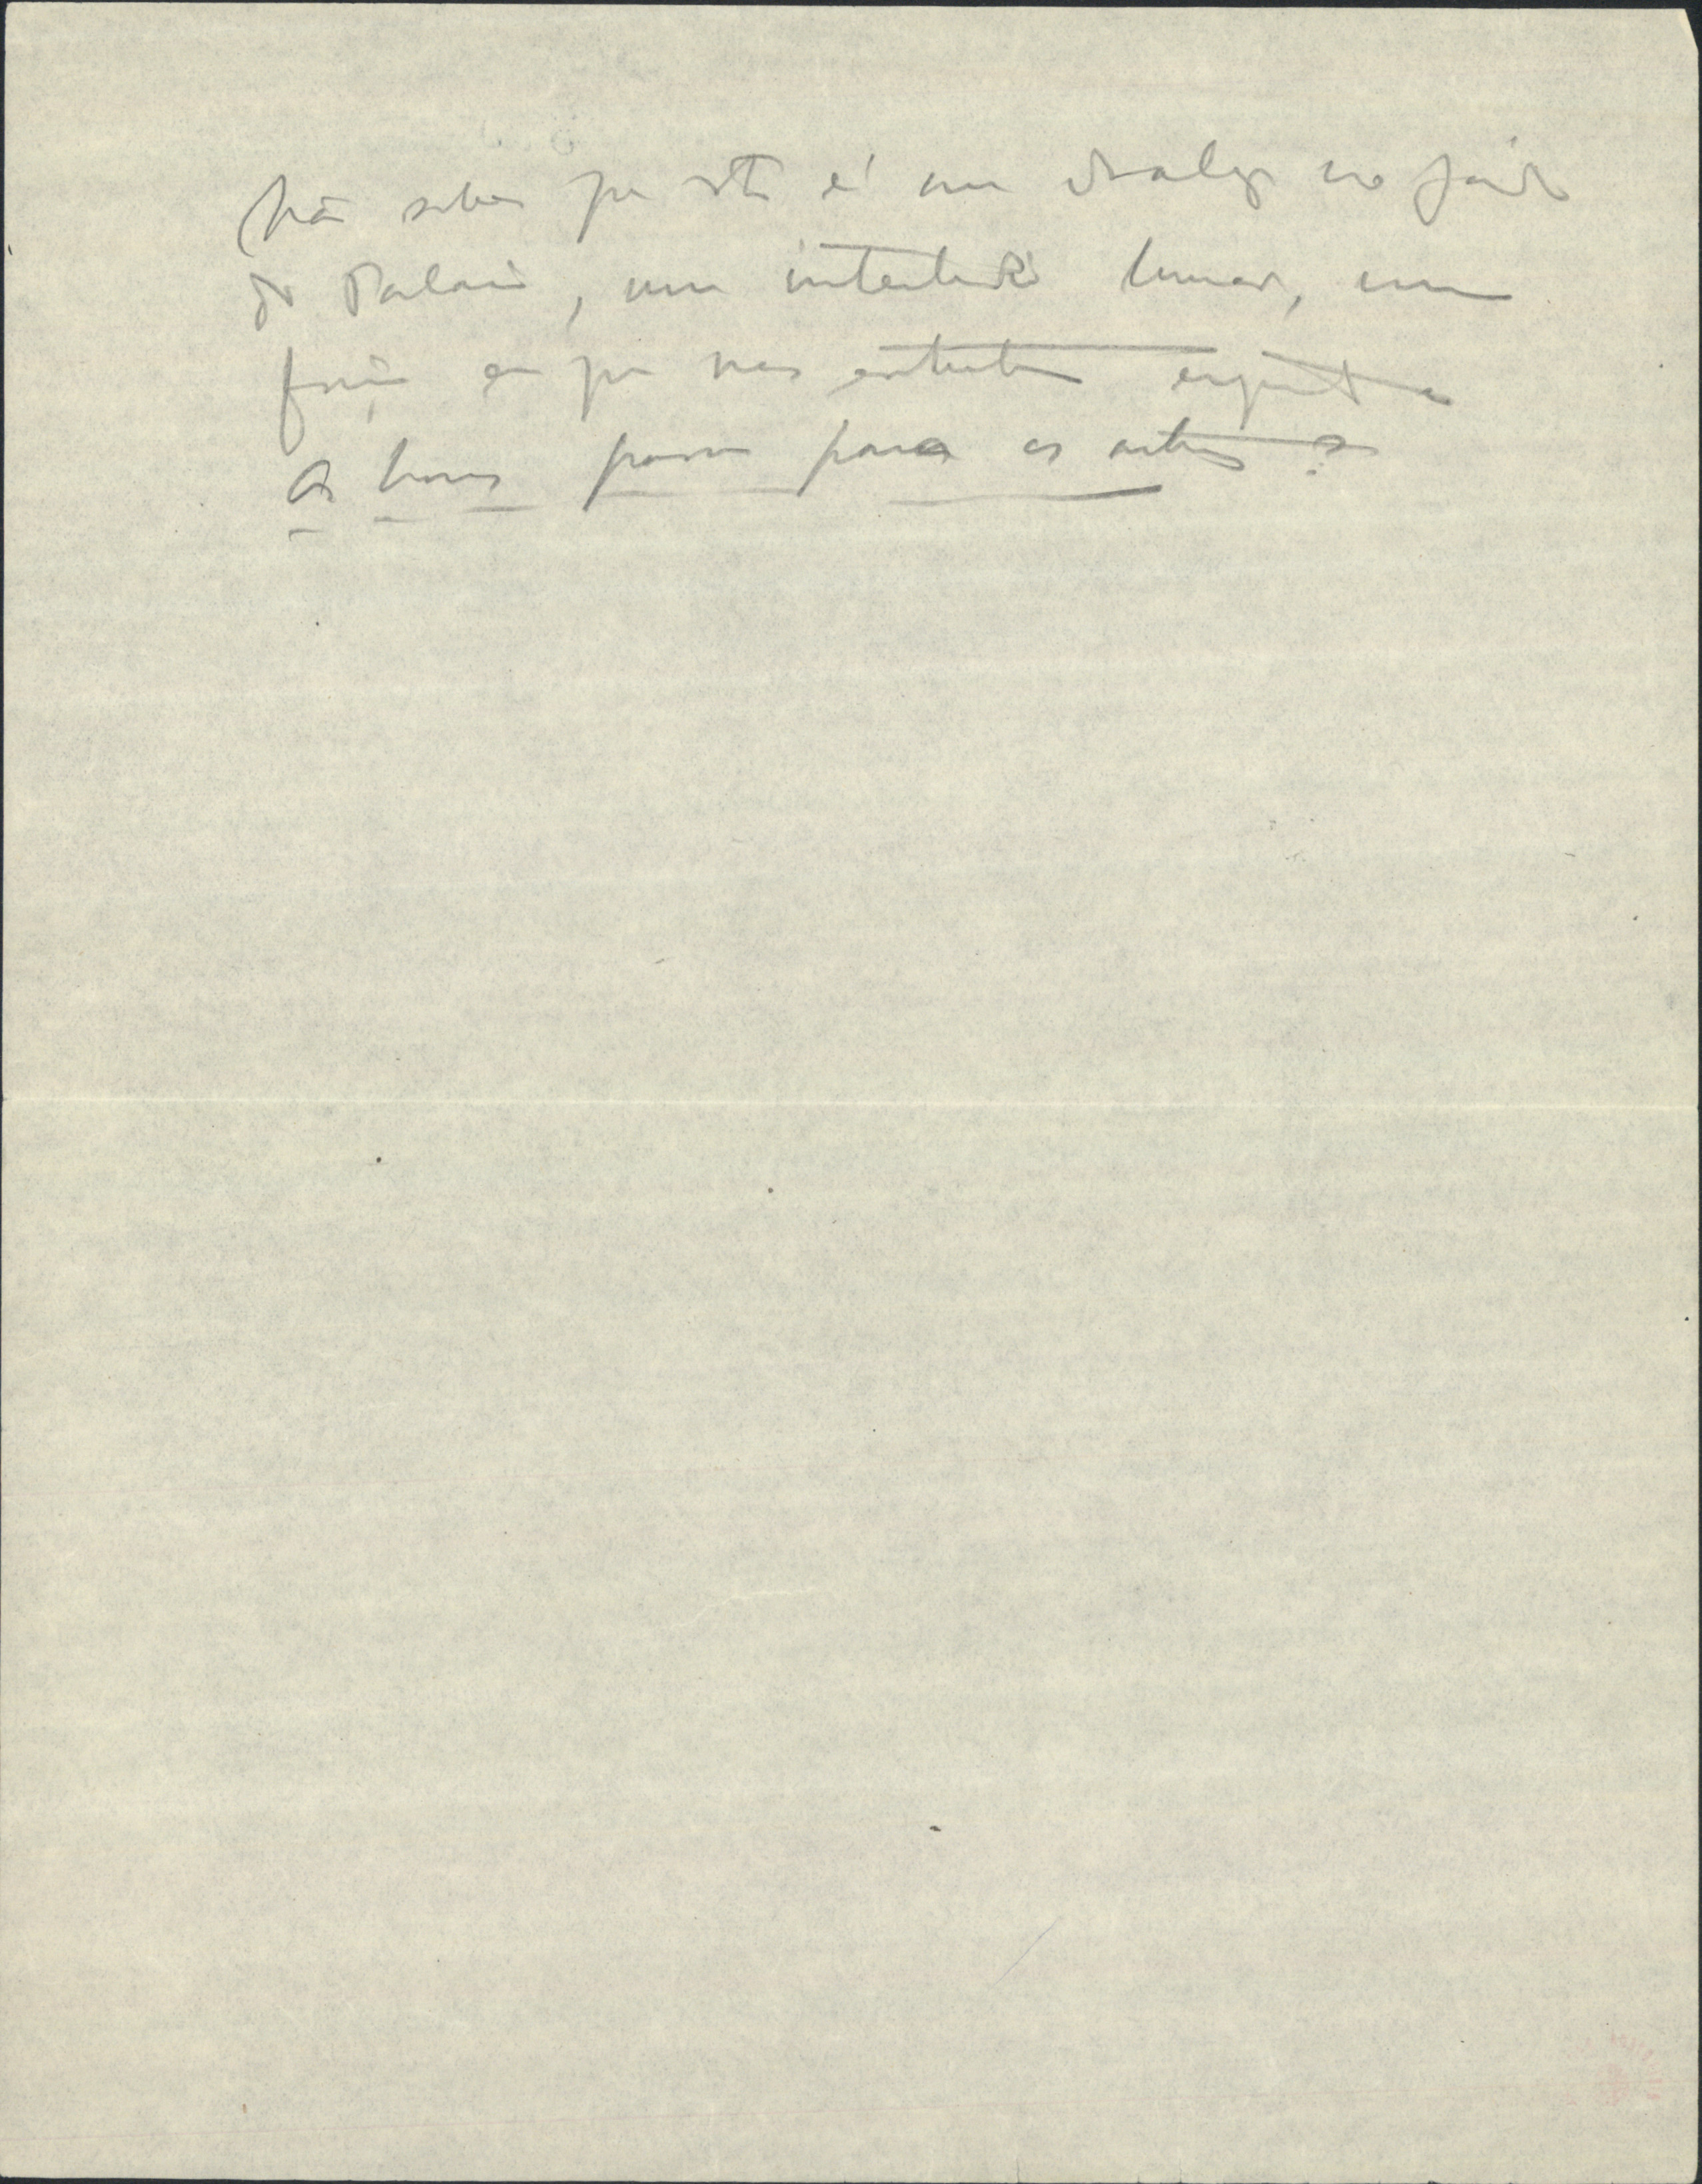 Não sabes que isto é um dialogo no jardim
do Palacio, um interludio lunar, uma
função em que nos entretemos enquanto
as horas passam para os outros?